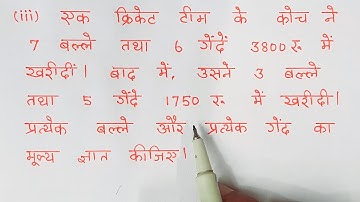 (iii) एक क्रिकेट टीम के कोच ने
7 बल्ले तथा 6 गेंदें 3800 रु. में
खरीदीं। बाद में, उसने 3 बल्ले
तथा 5 गेंदें 1750 रु. में खरीदी।
प्रत्येक बल्ले और प्रत्येक गेंद का
मूल्य ज्ञात कीजिए।